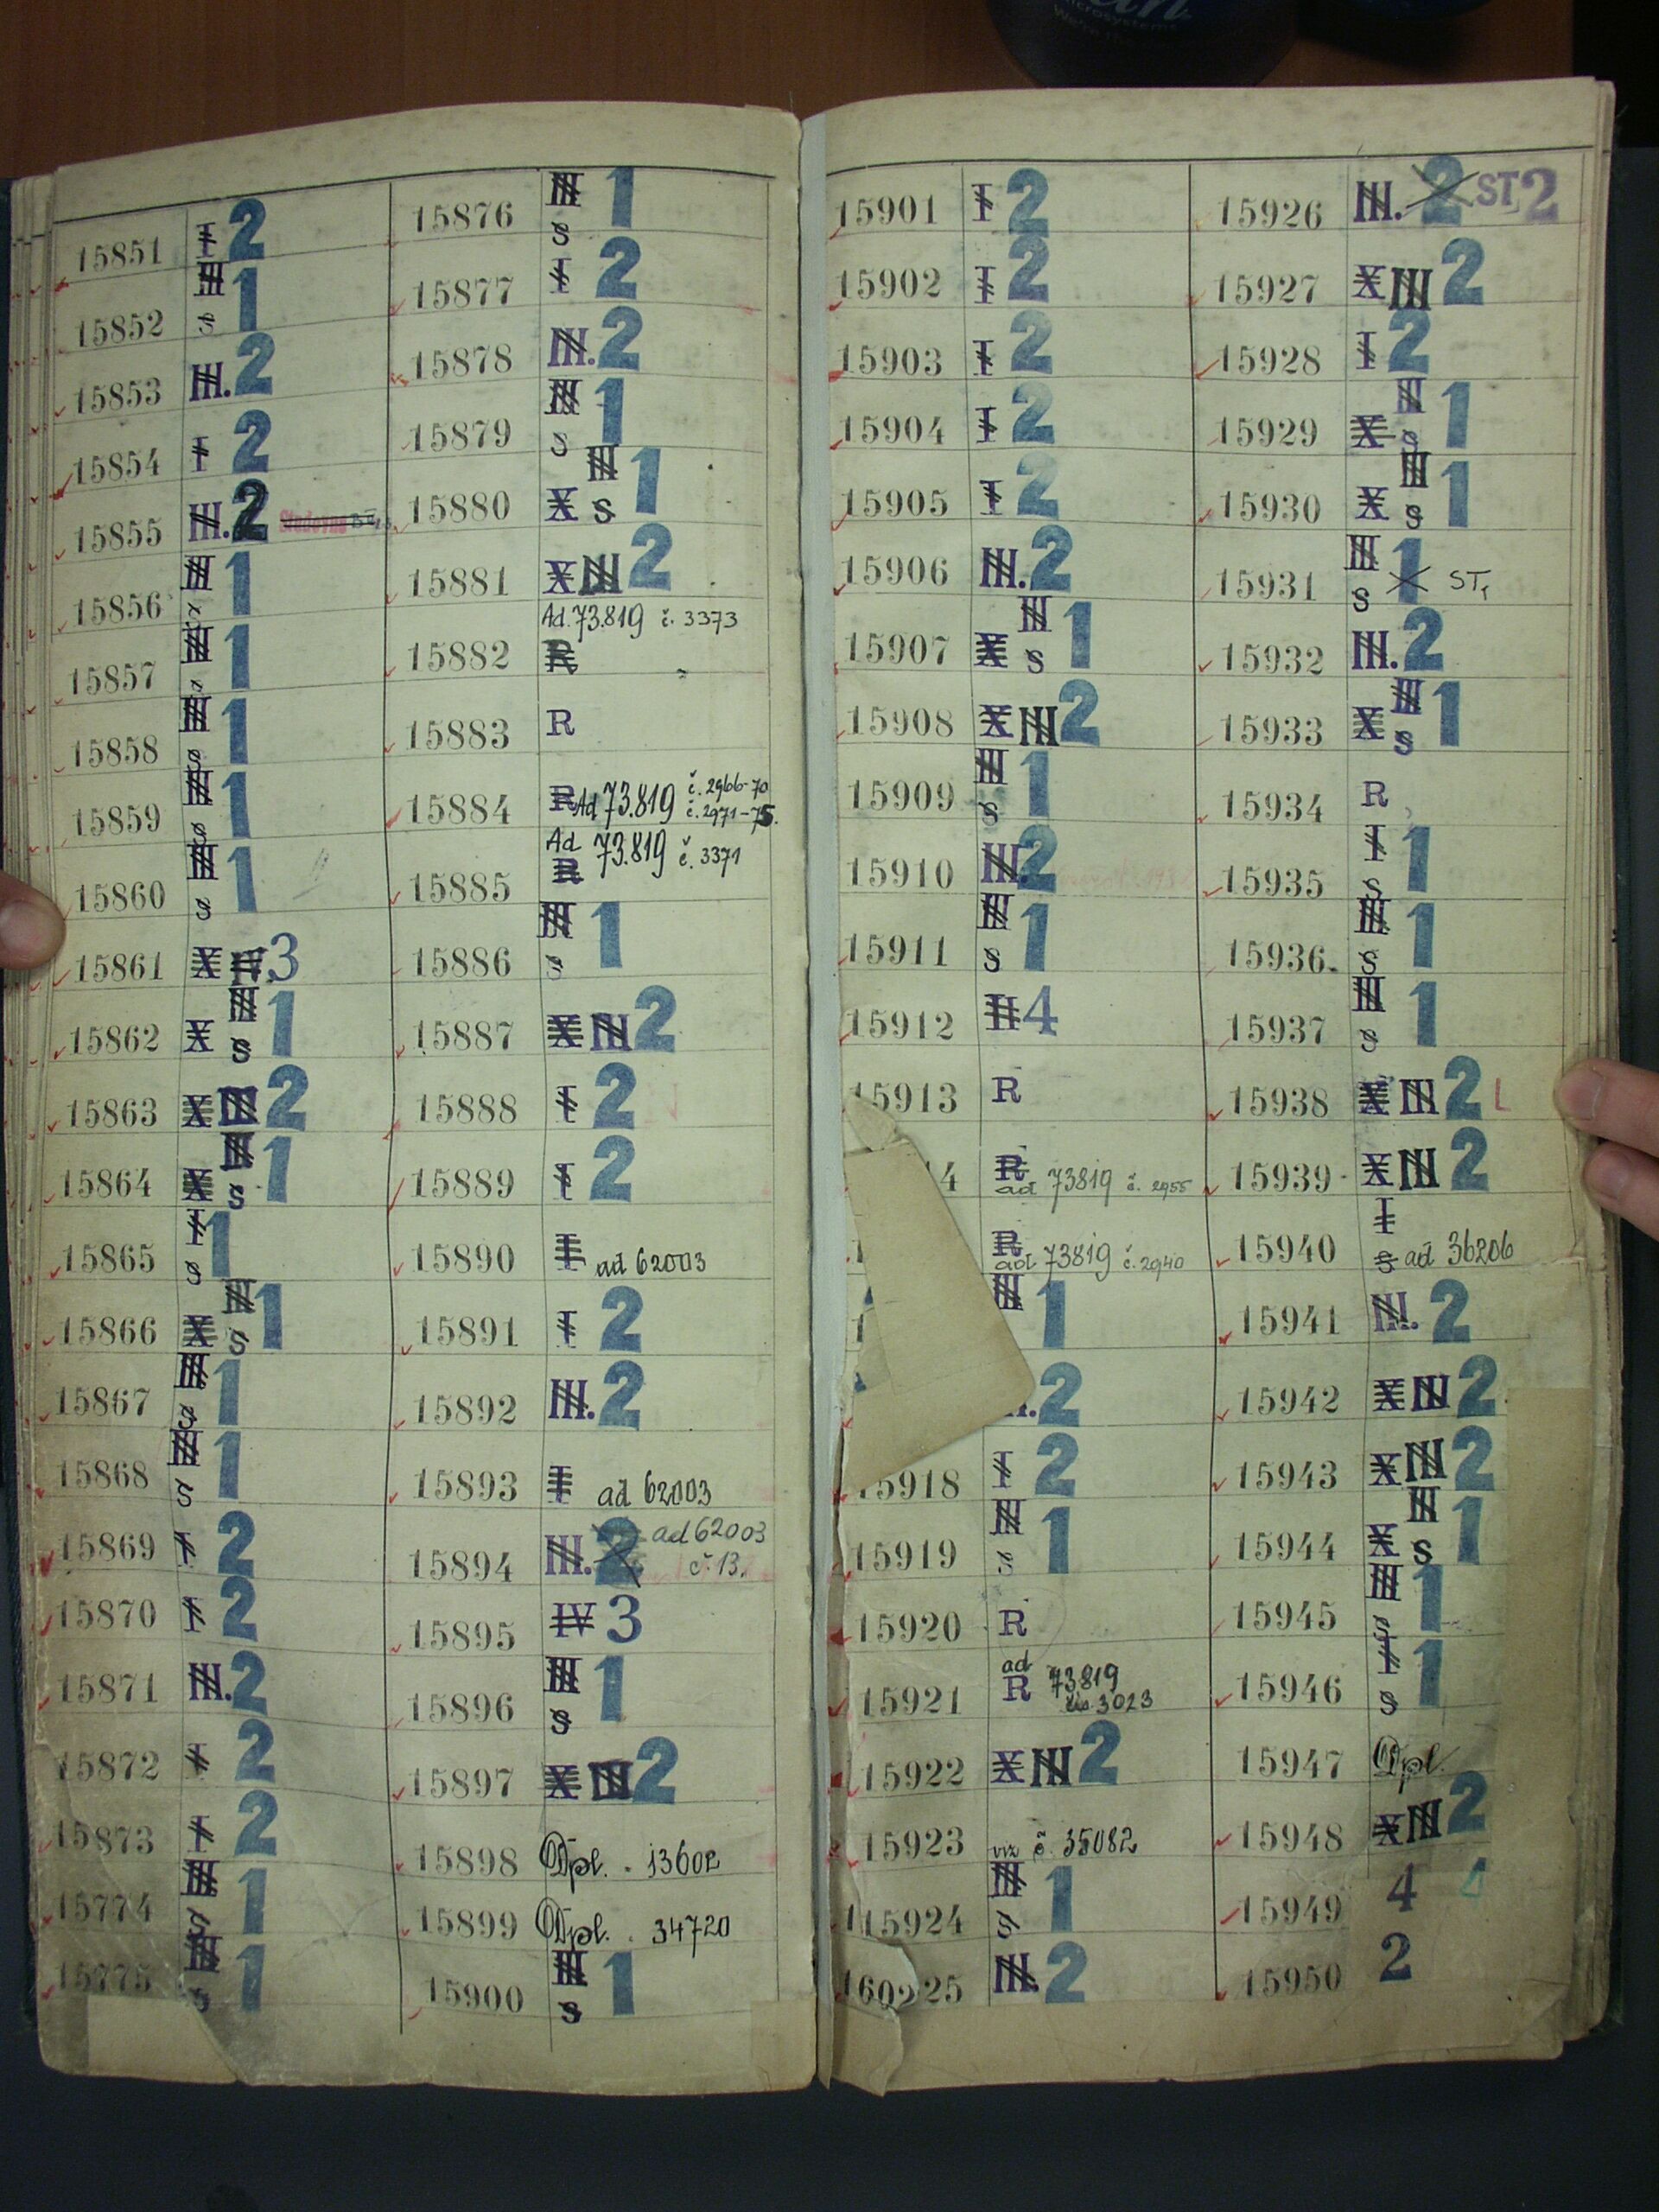 15851 I 2
15852 III s 1
15853 III. 2
15854 I 2
15855 III. 2
15856 III s 1
15857 III s 1
15858 III s 1
15859 III s 1
15860 III s 1
15861 X IV. 3
15862 X III s 1
15863 X III 2
15864 X III s 1
15865 I s 1
15866 X III s 1
15867 III s 1
15868 III s 1
15869 I 2
15870 I 2
15871 III. 2
15872 I 2
15873 I 2
15774 III s 1
15775 III s 1
15876 III s 1
15877 I 2
15878 III. 2
15879 III s 1
15880 X III s 1
15881 X III 2
Ad. 73.819 č. 3373
15882 R
15883 R
15884 R Ad 73.819 č. 2966-70
č. 2971-75.
Ad 73.819 č. 3371
15885 R
15886 III s 1
15887 X III 2
15888 I 2
15889 I 2
15890 I ad 62003
15891 I 2
15892 III. 2
15893 I ad 62003
15894 III. 2 ad 62003
č. 13.
15895 IV 3
15896 III s 1
15897 X III 2
15898 Dpl. 13602
15899 Dpl. 34720
15900 III s 1
15901 I 2
15902 I 2
15903 I 2
15904 I 2
15905 I 2
15906 III. 2
15907 X III s 1
15908 X III 2
15909 III s 1
15910 III. 2
15911 III s 1
15912 II 4
15913 R
4 R
ad 73819 č. 2955
R
ad 73819 č. 2940
III 1
. 2
15918 I 2
15919 III s 1
15920 R
ad
15921 R 73819
3023
15922 X III 2
15923 viz č. 35082
15924 III s 1
III. 2
15926 III. 2 ST 2
15927 X III 2
15928 I 2
15929 X III s 1
15930 X III s 1
15931 III s 1 ST1
15932 III. 2
15933 X III s 1
15934 R
15935 I s 1
15936. III s 1
15937 III s 1
15938 X III 2 L
15939 X III 2
15940 I
s ad 36206
15941 III. 2
15942 X III 2
15943 X III 2
15944 X III s 1
15945 III s 1
15946 I s 1
15947 Dpl.
15948 X III 2
15949 4
15950 2